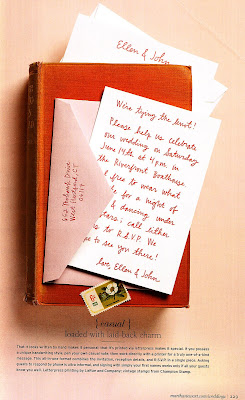 Ellen & John
We're tying the knot!
Please help us celebrate
our wedding on Saturday
June 14th at 4 p.m. in
the Riverfront Boathouse.
free to wear what
for a night of
& dancing under
stars; call either
to R.S.V.P. We
to see you there!
Love, Ellen & John
West Hartford, CT
{casual}
loaded with laid-back charm
That it looks written by hand makes it personal; that it's printed via letterpress makes it special. If you possess
a unique handwriting style, pen your own casual note, then work closely with a printer for a truly one-of-a-kind
message. This all-in-one format combines the invitation, reception details, and R.S.V.P. in a single piece. Asking
guests to respond by phone is also informal, and signing with simply your first names works only if all your guests
know you well. Letterpress printing by Larkin and Company; vintage stamps from Champion Stamp.
marthastewart.com/weddings | 223